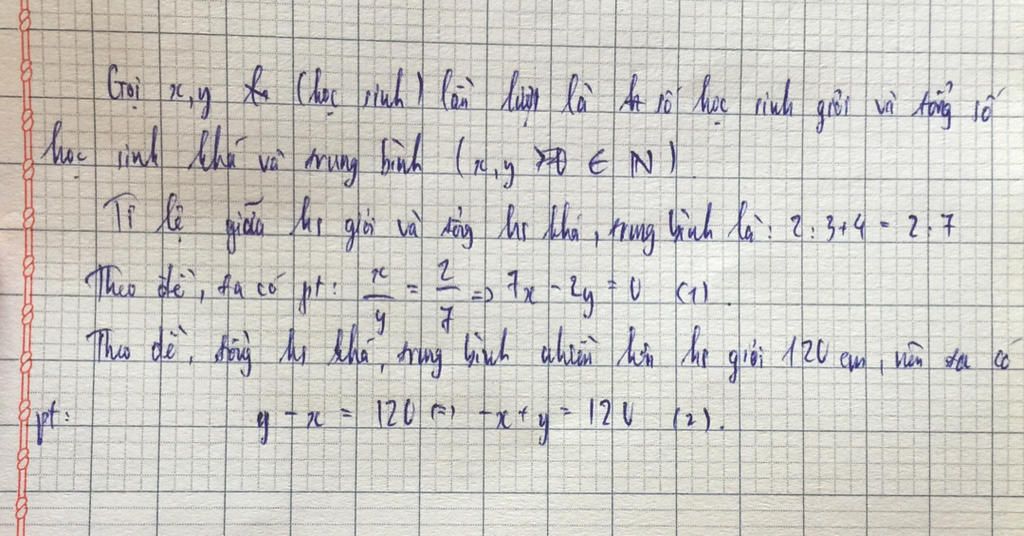 Gọi x, y (học sinh) lần lượt là số học sinh giỏi và tổng số
học sinh khá và trung bình (x, y ∈ N)
Tỉ lệ giữa hs giỏi và tổng hs khá, trung bình là: 2 : 3+4 = 2 : 7
Theo đề, ta có pt: x/y = 2/7 => 7x - 2y = 0 (1).
Theo đề, tổng hs khá, trung bình nhiều hơn hs giỏi 120 em, nên ta có
pt: y - x = 120 => -x + y = 120 (2).